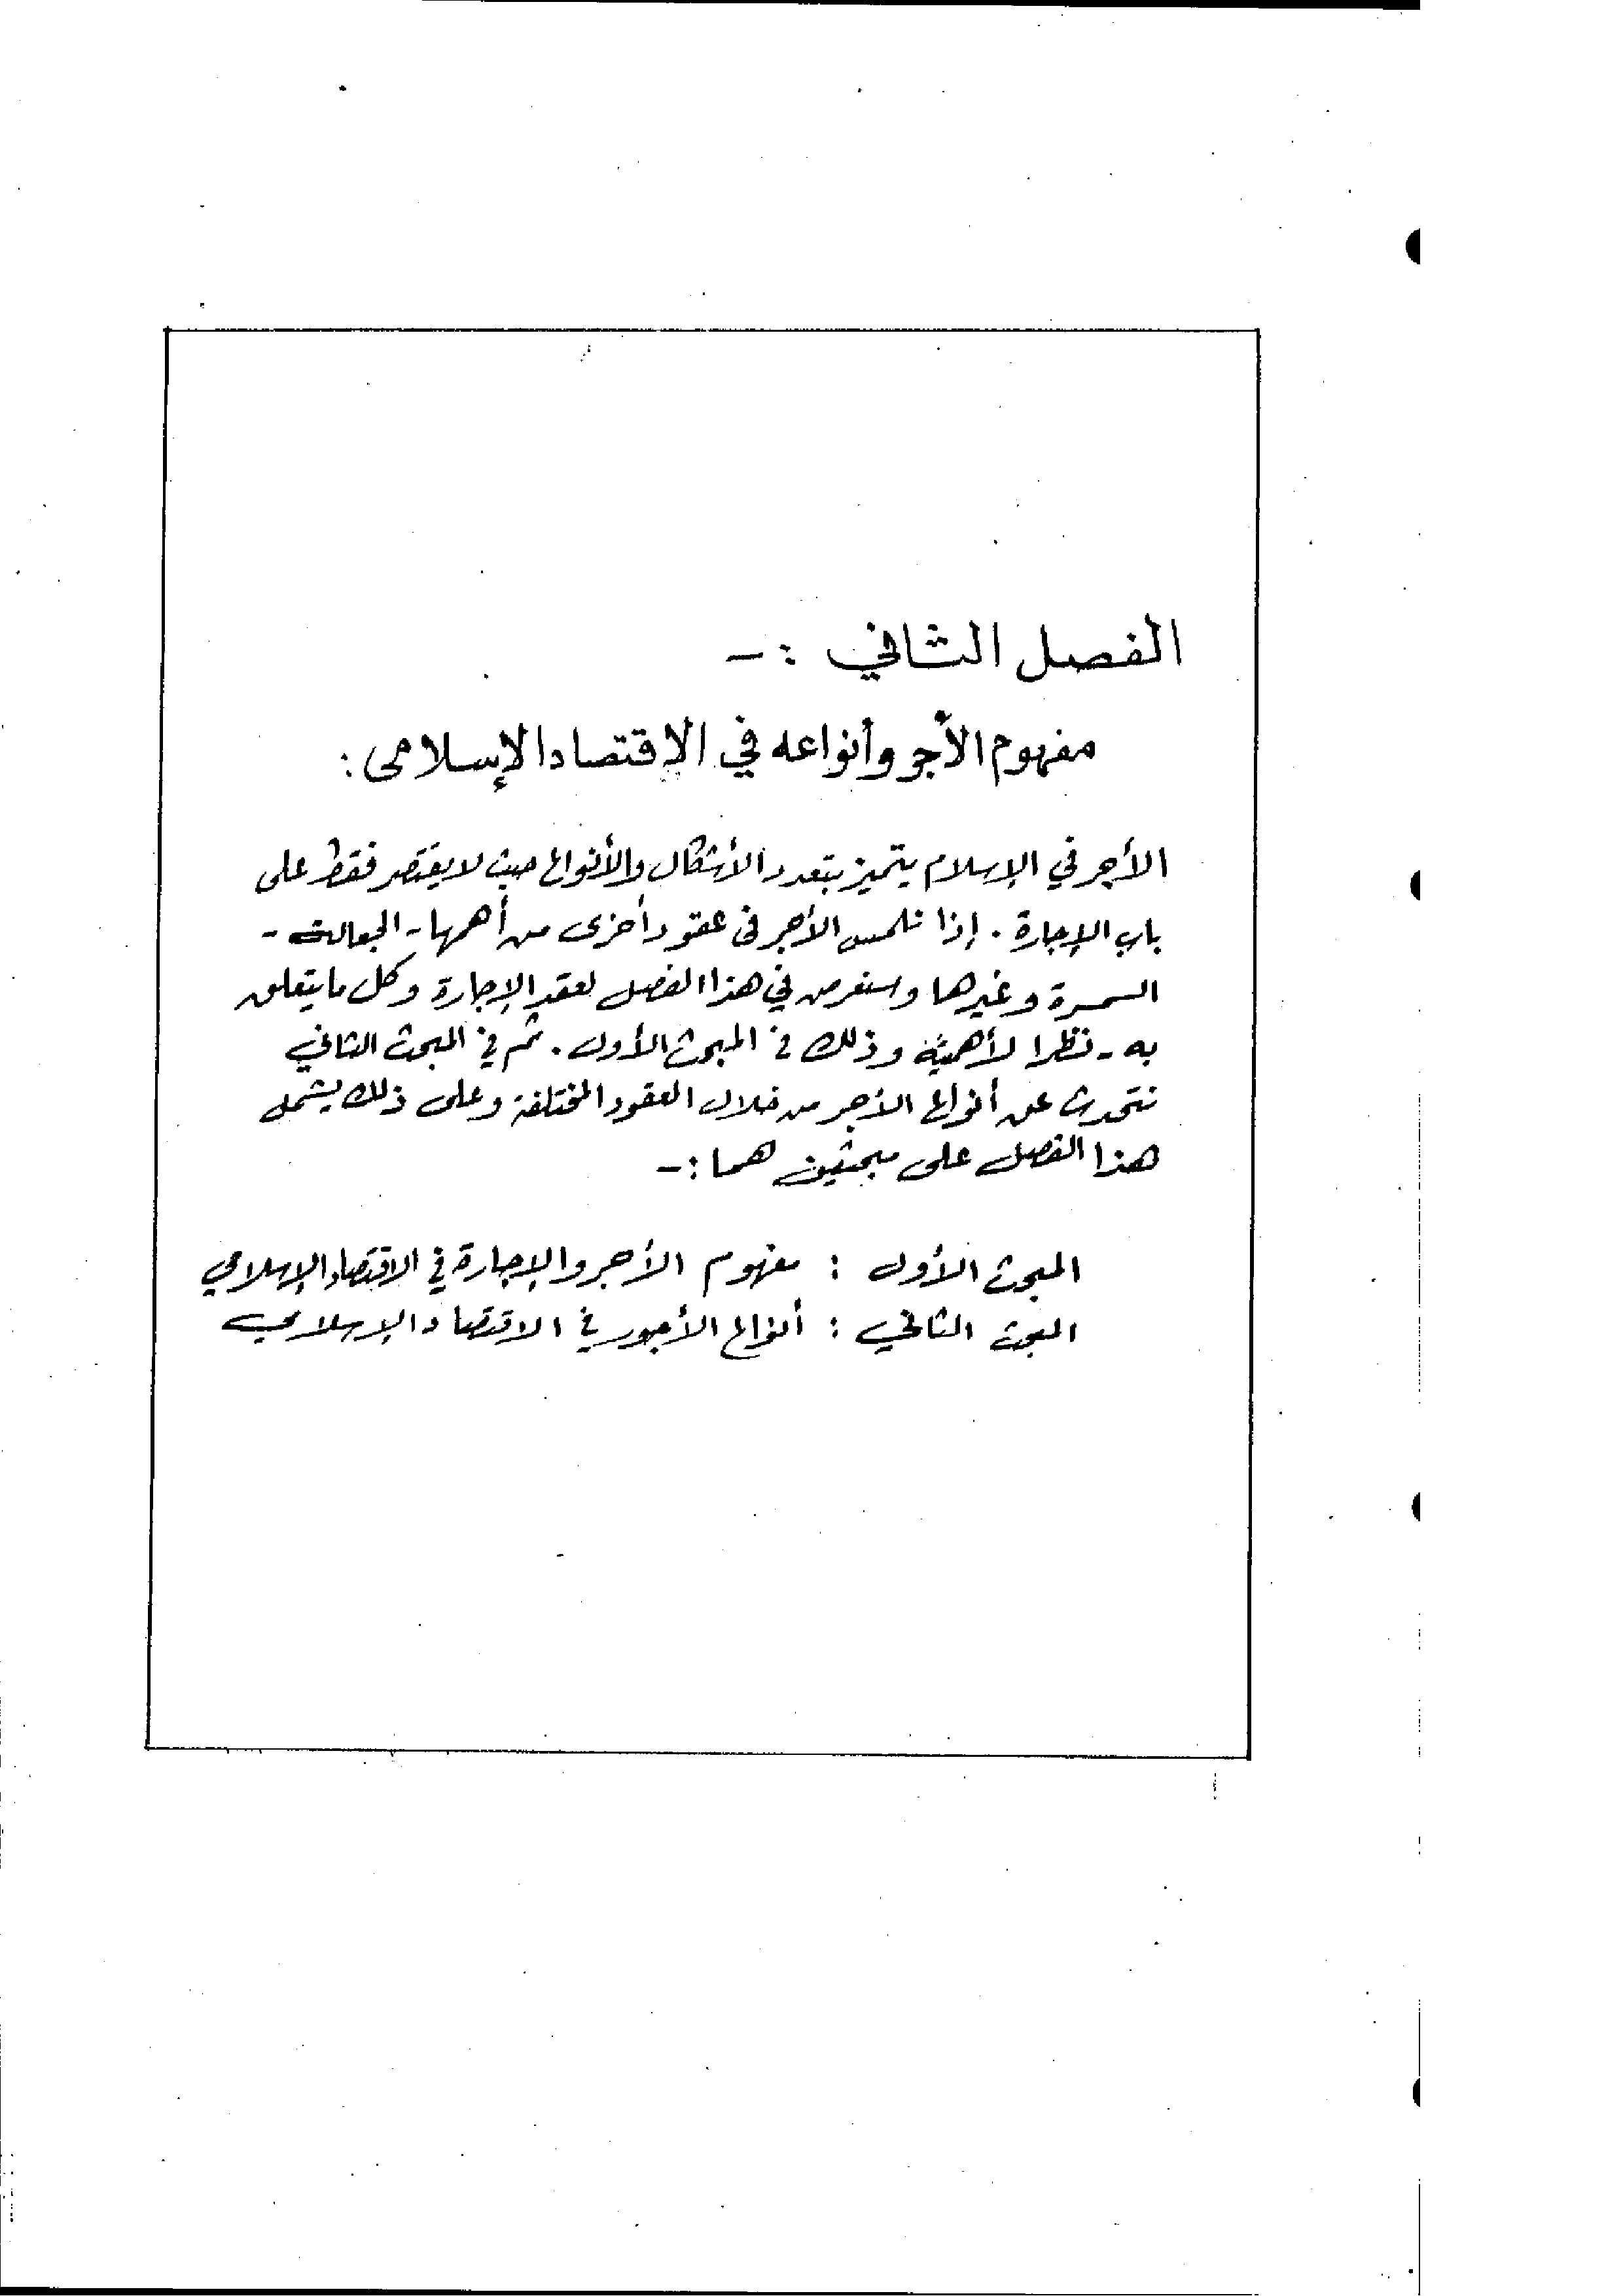 الفصل الثاني :-
مفهوم الأجر وأنواعه في الاقتصاد الإسلامى :
الأجر في الإسلام يتميز بتعدد الأشكال والأنواع حيث لا يقتصر فقط على
باب الإجارة . إذا نلمس الأجر فى عقود أخرى من أهمها - الجعالة -
السمسرة وغيرها وسنعرض في هذا الفصل لعقد الإجارة وكل ما يتعلق
به - نظرا لأهميته وذلك في المبحث الأول . ثم في المبحث الثاني
نتحدث عن أنواع الأجر من خلال العقود المختلفة وعلى ذلك يشمل
هذا الفصل على مبحثين هما :-
المبحث الأول : مفهوم الأجر والإجارة في الاقتصاد الإسلامي
المبحث الثاني : أنواع الأجور في الاقتصاد الإسلامي